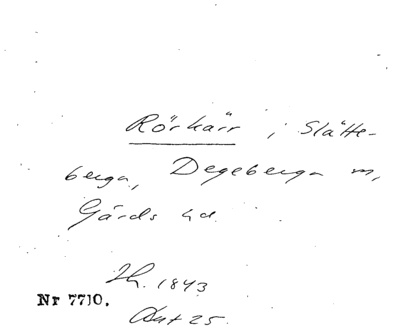 Rörkärr i Slätte-
berga, Degeberga m,
Gärds hd.
1843
Nr 7710.
25.